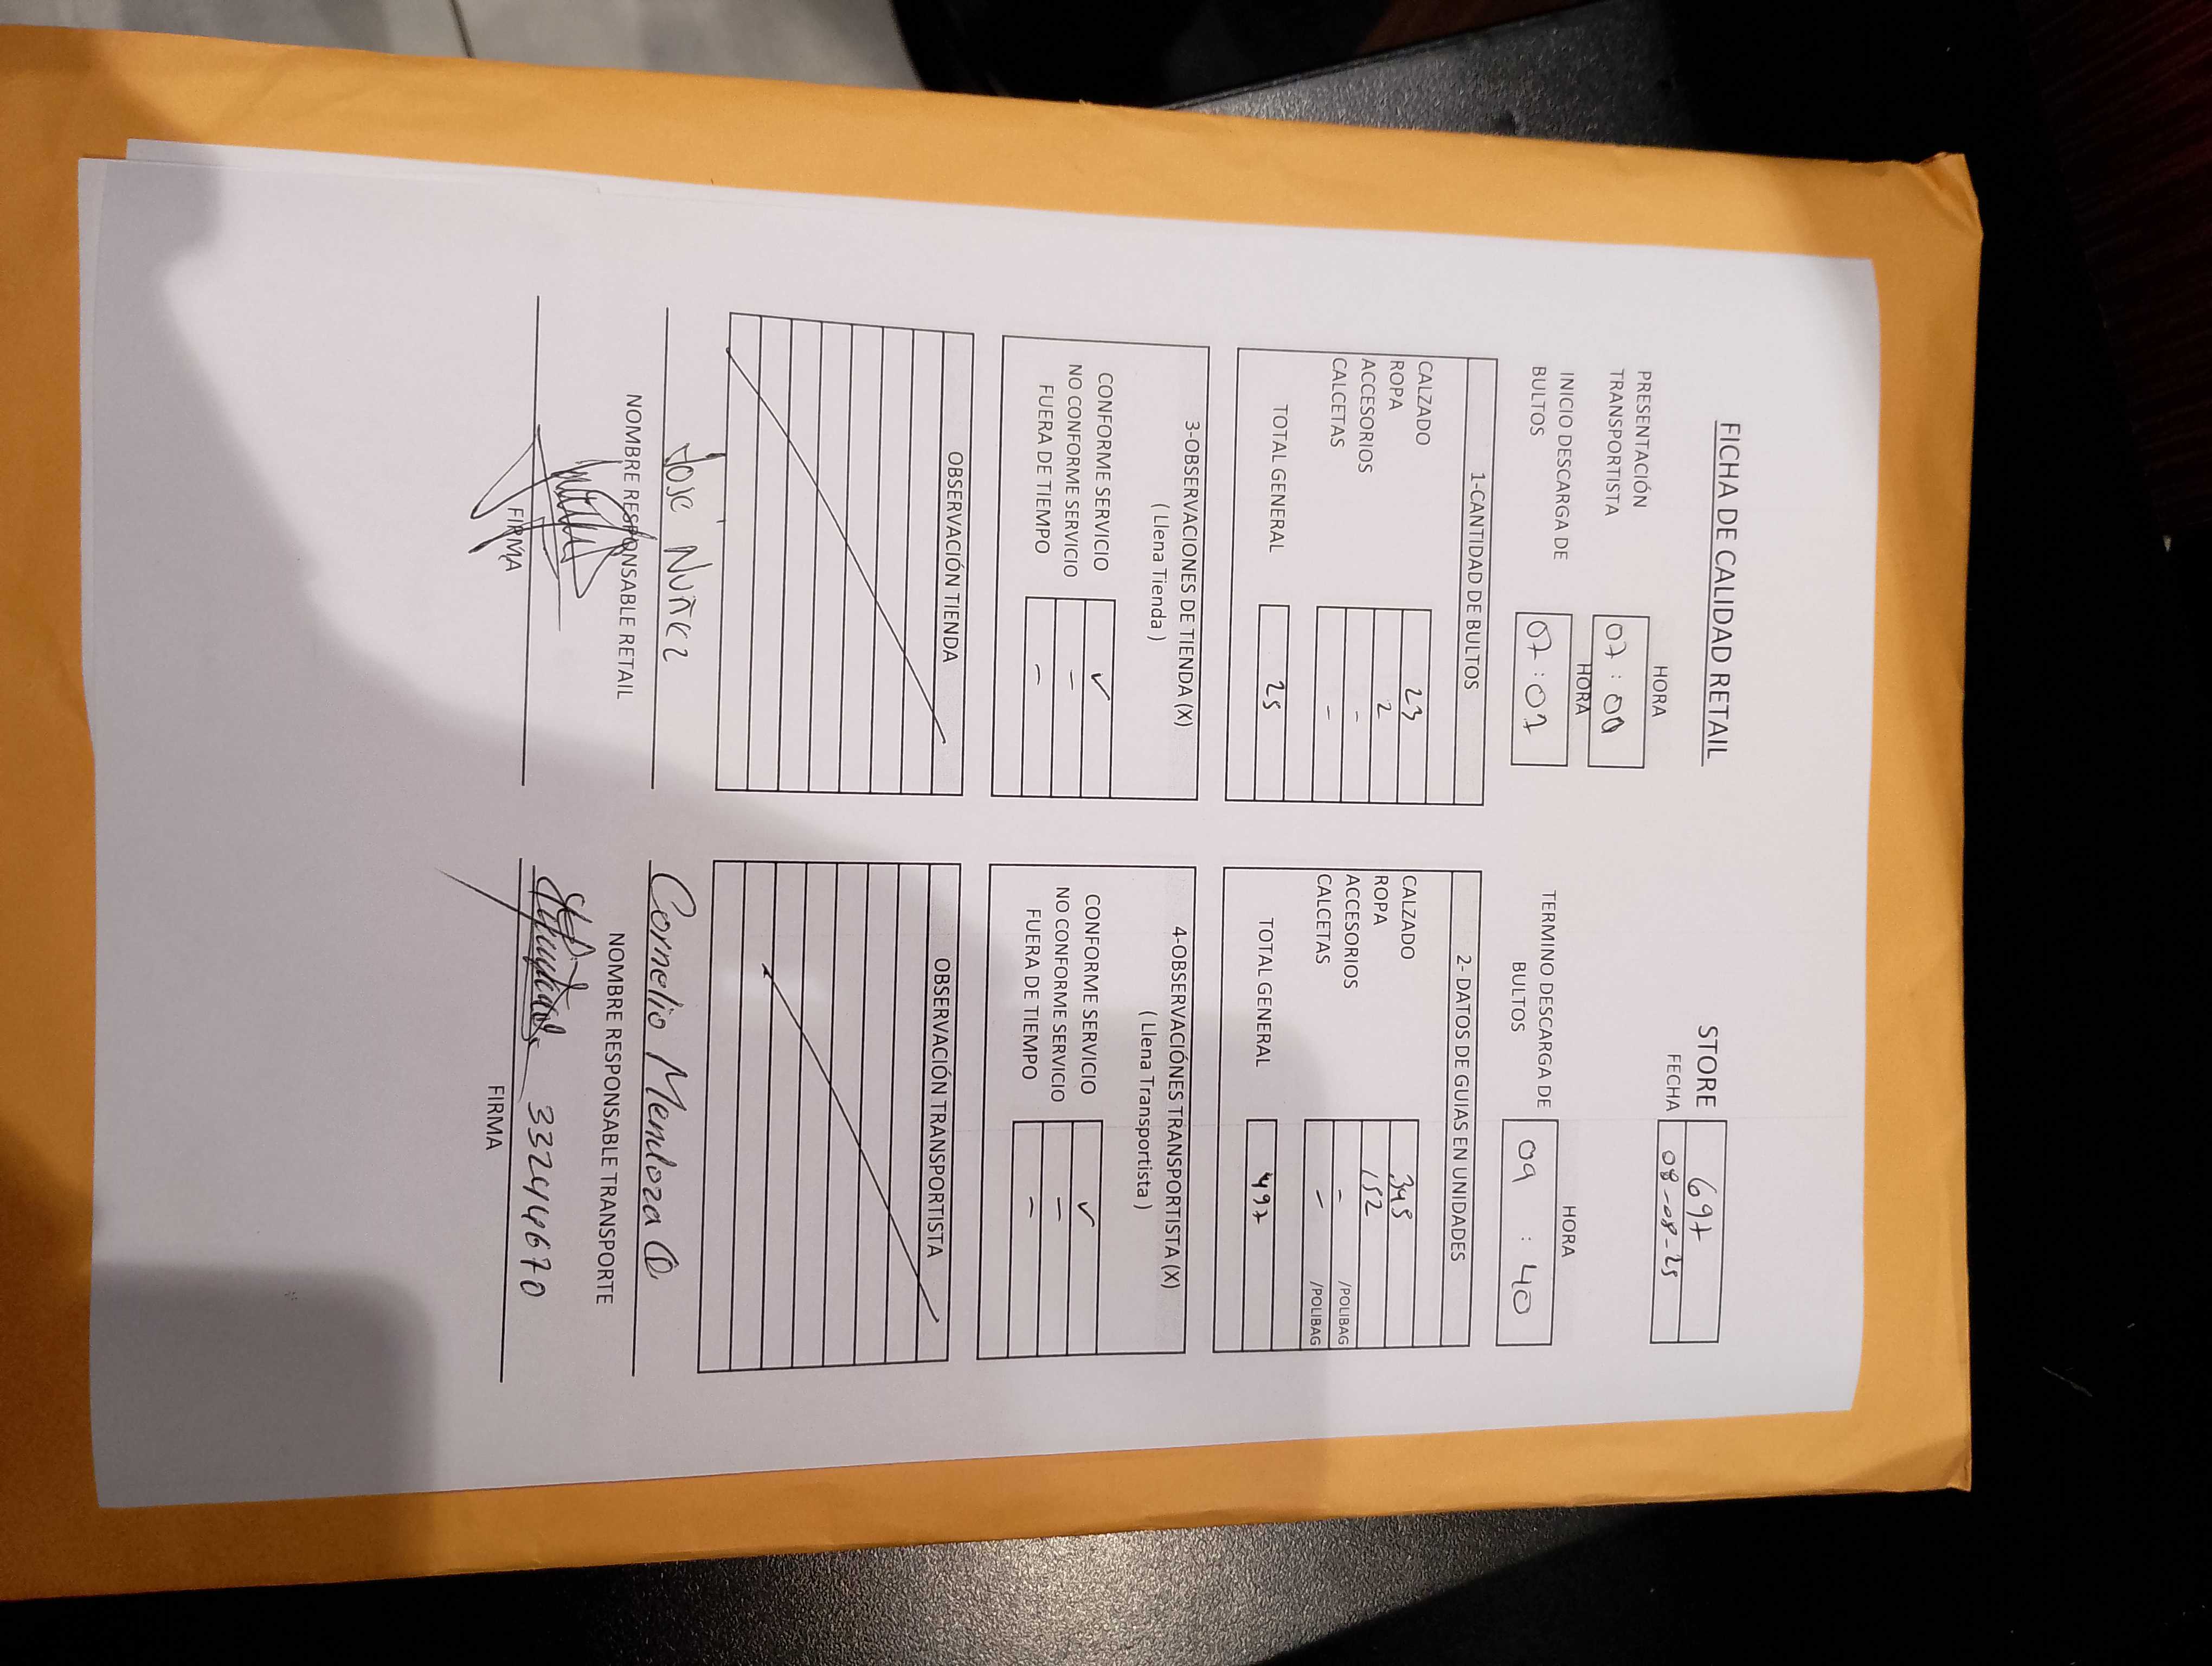 FICHA DE CALIDAD RETAIL
STORE 697
FECHA 08-08-25
HORA
PRESENTACIÓN TRANSPORTISTA 07:00
HORA
INICIO DESCARGA DE BULTOS 07:07
HORA
TERMINO DESCARGA DE BULTOS 09:40
1-CANTIDAD DE BULTOS
CALZADO 23
ROPA 2
ACCESORIOS -
CALCETAS -
TOTAL GENERAL 25
2- DATOS DE GUIAS EN UNIDADES
CALZADO 345
ROPA 152
ACCESORIOS - /POLIBAG
CALCETAS - /POLIBAG
TOTAL GENERAL 497
3-OBSERVACIONES DE TIENDA (X)
( Llena Tienda )
CONFORME SERVICIO ✓
NO CONFORME SERVICIO -
FUERA DE TIEMPO -
4-OBSERVACIÓNES TRANSPORTISTA (X)
( Llena Transportista )
CONFORME SERVICIO ✓
NO CONFORME SERVICIO -
FUERA DE TIEMPO -
OBSERVACIÓN TIENDA
OBSERVACIÓN TRANSPORTISTA
José Nuñez
NOMBRE RESPONSABLE RETAIL
FIRMA
Cornelio Mendoza
NOMBRE RESPONSABLE TRANSPORTE
332444670
FIRMA